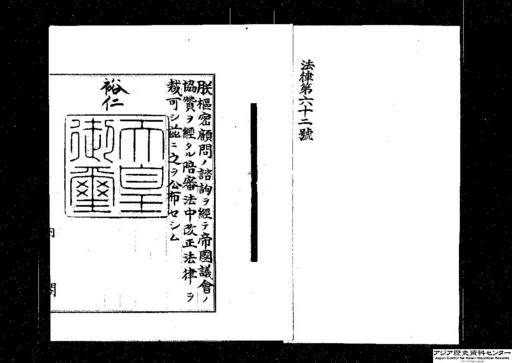 法律第六十二號
朕樞密顧問ノ諮詢ヲ經テ帝國議會ノ
協贊ヲ經タル陪審法中改正法律ヲ
裁可シ茲ニ之ヲ公布セシム
裕仁
天皇
御璽
内閣
アジア歴史資料センター